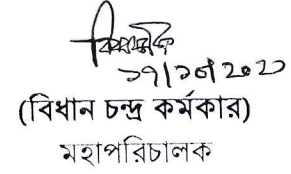 ১৭/১০/২০২০
(বিধান চন্দ্র কর্মকার)
মহাপরিচালক